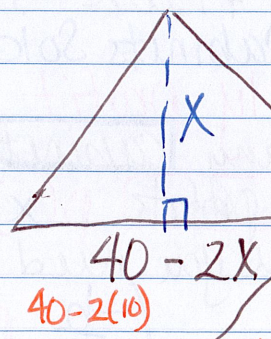 X
40 - 2X
40-2(10)